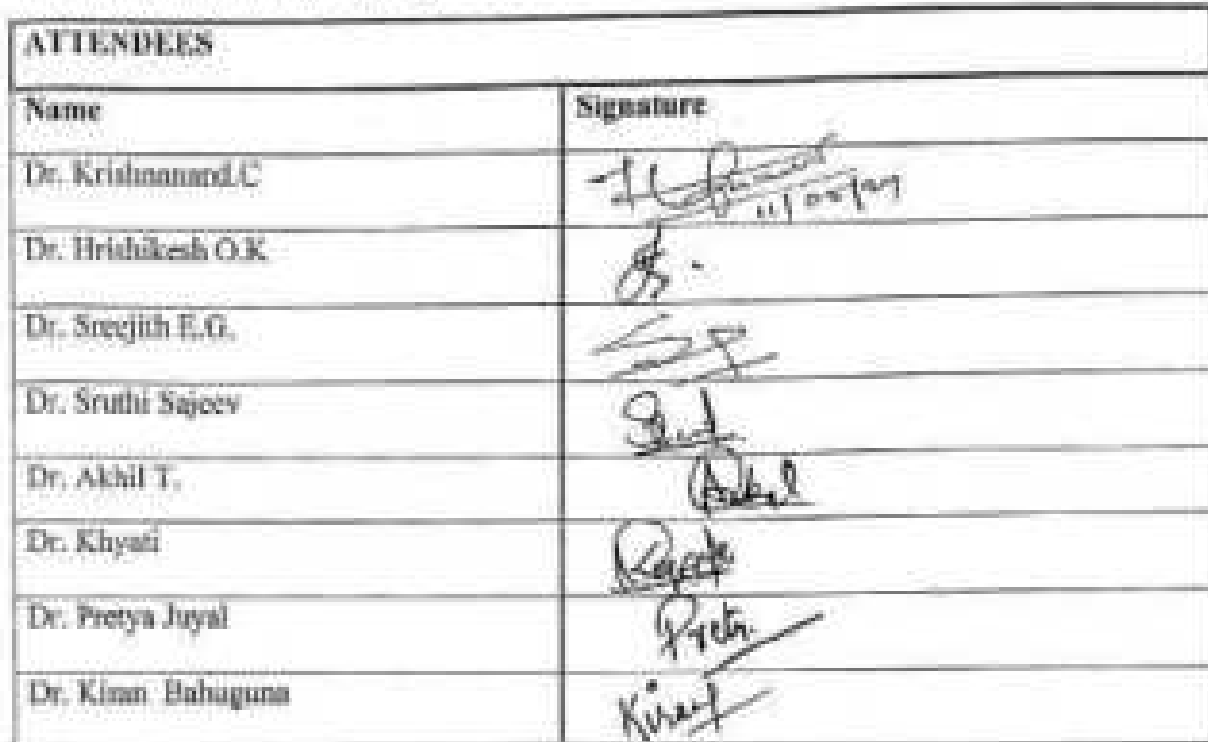 ATTENDEES
Name Signature
Dr. Krishnanand.C
Dr. Hrishikesh O.K
Dr. Sreejith E.G.
Dr. Sruthi Sajeev
Dr. Akhil T.
Dr. Khyati
Dr. Pretya Juyal
Dr. Kiran Bahuguna Kiran